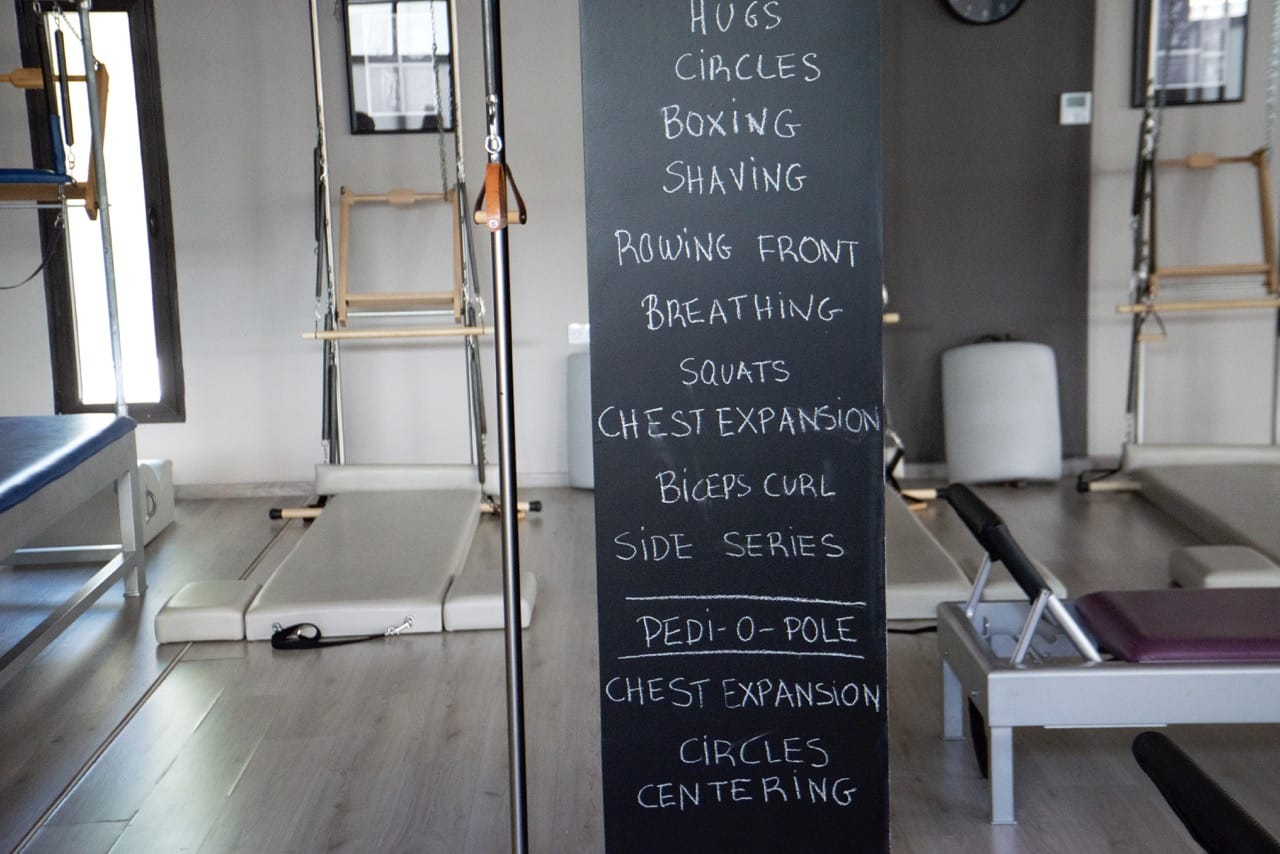 HUGS
CIRCLES
BOXING
SHAVING
ROWING FRONT
BREATHING
SQUATS
CHEST EXPANSION
BICEPS CURL
SIDE SERIES
PEDI-O-POLE
CHEST EXPANSION
CIRCLES
CENTERING